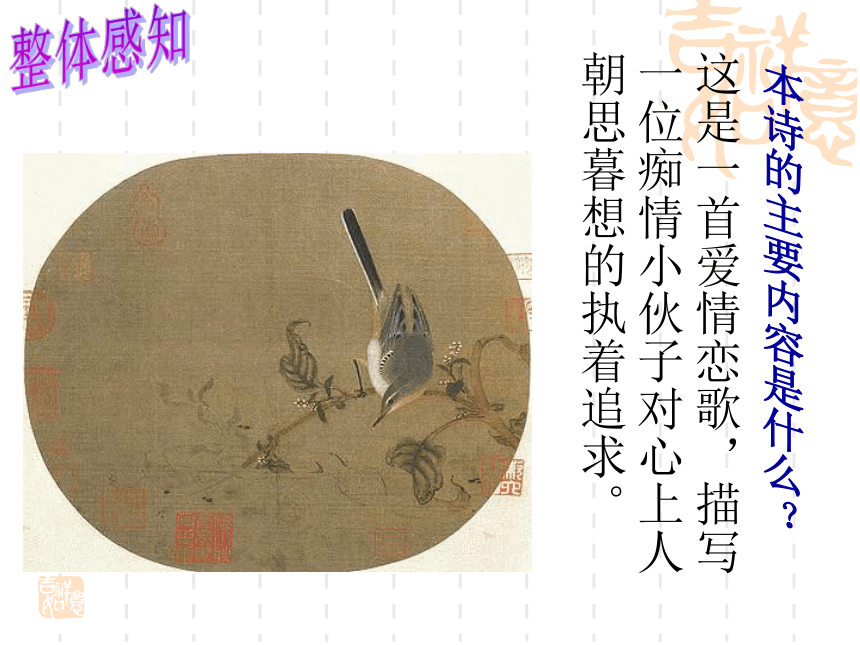 整体感知
本诗的主要内容是什么？
这是一首爱情恋歌，描写
一位痴情小伙子对心上人
朝思暮想的执着追求。
吉祥如意
吉祥如意